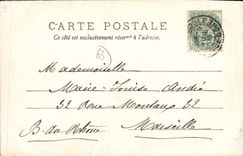 CARTE POSTALE
Ce côté est exclusivement réservé à l'adresse.
Mademoiselle
Marie-Louise André
52 Rue 52
B. du Rhône Marseille